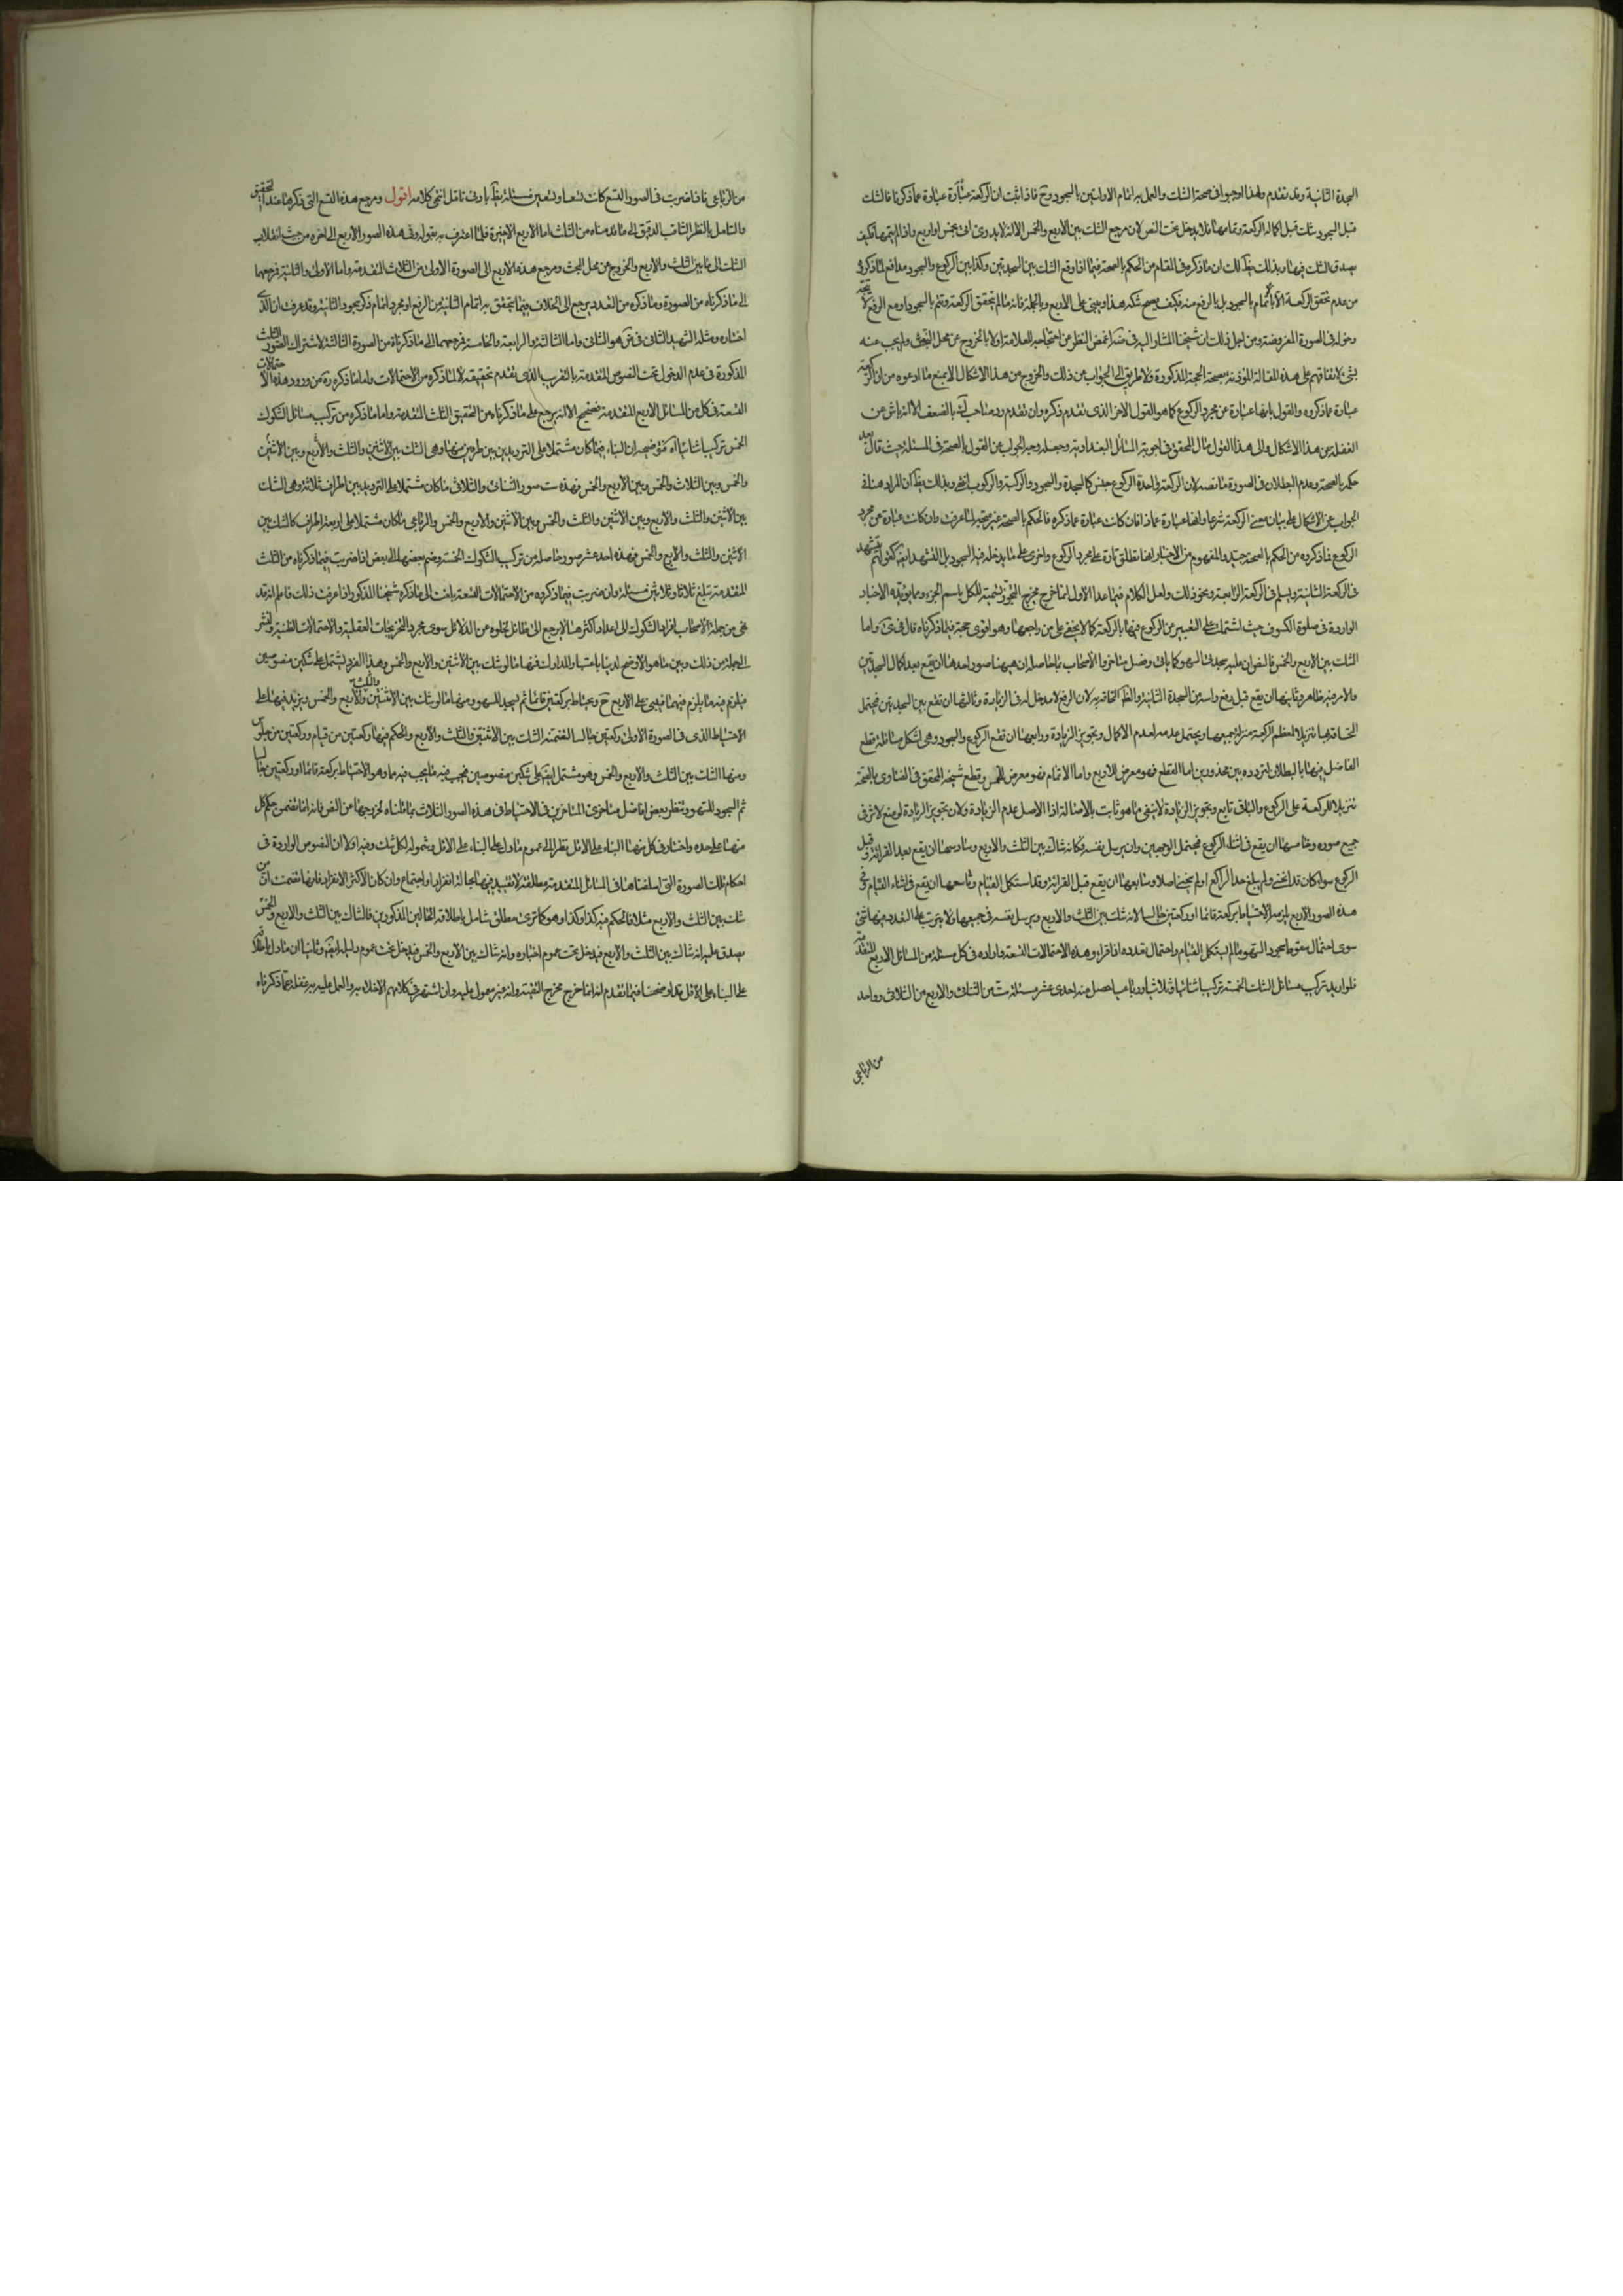 السجدة الثانية وقد تقدم ولهذا اوجبوا في صحة الشك والعمل به اتمام الاولتين بالسجود وح فاذا ثبت ان الركعة عبارة عما ذكرنا فالشك
قبل السجود شك قبل اكمال الركعة وتمامها فلا يدخل تحت النص لان مرجع الشك بين الاربع والخمس الا انه لا يدري انه خمس او اربع واذا لم يتمها فكيف
يصدق الشك فيها وبذلك يظهر لك ان ما ذكره في المقام من الحكم بالصحة فيما اذا وقع الشك بين السجدتين وكذا بين الركوع والسجود مدافع لما ذكروه
من عدم تحقق الركعة الا باتمام السجود بل بالرفع منه فكيف يصح شكه هذا ويبني على الاربع وبالجملة فانه ما لم يتحقق الركعة وتتم بالسجود او مع الرفع لا
الصورة المفروضة ومن اجل ذلك ان شيخنا المشار اليه في غمض النظر عن احتجاج العلامة اولا بالخروج عن محل البحث ولم يجب عنه
بشئ لاتفاقهم على هذه المقالة المؤذنة بصحة الحجة المذكورة ولا طريق الى الجواب عن ذلك والخروج من هذا الاشكال الا بمنع ما ادعوه من ان الركعة
عبارة عما ذكروه والقول بانها عبارة عن مجرد الركوع كما هو القول الاخر الذي تقدم ذكره وان تقدم رد صاحب له بالضعف الا انه ناش عن
الغفلة عن هذا الاشكال والى هذا القول مال المحقق في اجوبة المسائل البغدادية وجعله وجه الجواب عن القول بالصحة في المسئلة حيث قال بعد
حكمه بالصحة وعدم البطلان في الصورة ما نصه لان الركعة واحدة الركوع جنس كالسجدة والسجود والركبة والركوب انتهى وبذلك يظهر ان المراد هنا في
الجواب عن الاشكال على بيان معنى الركعة شرعا وانها عبارة عما ذا فان كانت عبارة عما ذكره فالحكم بالصحة غير صحيح لما عرفت وان كانت عبارة عن مجرد
الركوع فما ذكروه من الحكم بالصحة جيد والمفهوم من الاخبار انها تطلق تارة على مجرد الركوع واخرى على ما يدخله فيه السجود بل التشهد ايضا كقولهم يتشهد
في الركعة الثانية ويسلم في الركعة الرابعة ونحو ذلك ولعل الكلام فيما عدا الاول انما خرج مخرج التجوز تسمية للكل باسم الجزء ومما يؤيده الاخبار
الواردة في صلوة الكسوف حيث اشتملت على التعبير عن الركوع فيها بالركعة كما لا يخفى على من راجعها وهو اقوى حجة فيما ذكرناه قال في واما
الشك بين الاربع والخمس فالنص ان عليه سجدتي السهو كما يأتي وفصل متأخروا الاصحاب بما حاصله ان هيهنا صور احدها ان يقع بعد اكمال السجدتين
والامر فيه ظاهر وثانيها ان يقع قبل رفع راسه من السجدة الثانية والظ الحاقه به لان الرفع لا مدخل له في الزيادة وثالثها ان تقع بين السجدتين فيحتمل
الحاقها تنزيلا لمعظم الركعة منزلة جميعها ويحتمل عدمه لعدم الاكمال وتجويز الزيادة ورابعها ان تقع الركوع والسجود وهي اشكل مسائله فقطع
الفاضل فيها بالبطلان لتردده بين محذورين اما القطع فهو معرض للاربع واما الاتمام فهو معرض للخمس وقطع شيخه المحقق في الفتاوى بالصحة
تنزيلا للركعة على الركوع والباقي تابع وتجويز الزيادة لا ينفي ما هو ثابت بالاصالة اذا الاصل عدم الزيادة ولان تجويز الزيادة لو منع لاثر في
جميع صوره وخامسها ان يقع في اثناء الركوع فيحتمل الوجهين وان يرسل نفسه وكانه شاك بين الثلث والاربع وسادسها ان يقع بعد القرائة وقبل
الركوع سواء كان قد انحنى ولم يبلغ حد الراكع او لم ينحن اصلا وسابعها ان يقع قبل القرائة وقد استكمل القيام وثامنها ان يقع في اثناء القيام ففي
هذه الصور الاربع يلزمه الاحتياط بركعة قائما او ركعتين جالسا لانه شك بين الثلث والاربع ويرسل نفسه في جميعها ولا يترتب على التعدد فيها شئ
سوى احتمال سقوط سجود السهو ما لم يستكمل القيام واحتمال تعدده اذا قرا وهذه الاحتمالات التسعة واردة في كل مسئلة من المسائل الاربع المتقدمة
فلو اريد تركيب مسائل الشك الخمسة تركيبا ثنائيا وثلاثيا ورباعيا حصل منه احدى عشر مسئلة ست من الثنائي والاربع من الثلاثي وواحد
من الرباعي
من الرباعي فاذا ضربت في الصور التسع كانت تسعا وتسعين مسئلة يظهر بادنى تامل انتهى كلامه اقول ومرجع هذه التسع التي ذكرها عند التحقيق
والتامل بالنظر الثاقب الدقيق الى ما قدمناه من الثلث اما الاربع الاخيرة فلما اعترف به بقوله وفي هذه الصور الاربع الى اخره من حيث انقلاب
الشك الى ما بين الثلث والاربع والخروج عن محل البحث ومرجع هذه الاربع الى الصورة الاولى من الثلاث المتقدمة واما الاولى والثانية فمرجعهما
الى ما ذكرناه من الصورة وما ذكره من التعدد يرجع الى الخلاف فيما يتحقق به اتمام الثانية من الرفع او مجرد اتمام ذكر سجود الثانية وقد عرفت ان الذي
اختاره ومثله الشهيد الثاني في هو الثاني واما الثالثة والرابعة والخامسة فمرجعهما الى ما ذكرناه من الصورة الثالثة لاشتراك الصور الثلث
المذكورة في عدم الدخول تحت النصوص المتقدمة بالتقريب الذي تقدم تحقيقه لا لما ذكره من الاحتمالات واما ما ذكره من ورود هذه الاحتمالات
التسعة في كل من المسائل الاربع المتقدمة فصحيح الا انه يرجع على ما ذكرناه من التحقيق الثلث المتقدمة واما ما ذكره من تركيب مسائل الشكوك
الخمس تركيبا ثنائيا اه فتوضيحه ان البناء فيما كان مشتملا على الترديد بين طرفين منها وهي الشك بين الاثنتين والثلث والاربع وبين الاثنتين
والخمس وبين الثلاث والخمس وبين الاربع والخمس فهذه ست صور الثنائي والثلاثي ما كان مشتملا على الترديد بين اطراف ثلاثة وهي الشك
بين الاثنتين والثلث والاربع وبين الاثنتين والثلث والخمس وبين الاثنتين والاربع والخمس والرباعي ما كان مشتملا على اربعة اطراف كالشك بين
الاثنتين والثلث والاربع والخمس فهذه احد عشر صور حاصلة من تركيب الشكوك الخمسة وضم بعضها الى بعض اذا ضربت فيما ذكرناه من الثلث
المتقدمة تبلغ ثلاثا وثلاثين مسئلة وان ضربت فيما ذكروه من الاحتمالات التسعة بلغت الى ما ذكره شيخنا المذكور واذا عرفت ذلك فاعلم انه قد
بقي من جملة الاصحاب افراد الشكوك الى اعداد اكثرها لا يرجع الى طائل لخلوه من الدلائل سوى مجرد التخريجات العقلية والاحتمالات الظنية ولنشر
الى جملة من ذلك وبين ما هو الاوضح لدينا باعتبار المدارك فمنها ما لو شك بين الاثنتين والاربع والخمس وهذا الفرد يشتمل على شكين منصوصين
فيلزم فيه ما يلزم فيهما فيبني على الاربع ح ويحتاط بركعتين قائما ثم يسجد للسهو ومنها ما لو شك بين الاثنتين والثلث والاربع والخمس ويزيد فيها على
الاحتياط الذي في الصورة الاولى ركعتين جالسا لتضمنه الشك بين الاثنتين والثلث والاربع والحكم فيها ركعتين من قيام وركعتين من جلوس
ومنها الشك بين الثلث والاربع والخمس وهو مشتمل ايضا على شكين منصوصين فيجب فيه ما يجب فيهما وهو الاحتياط بركعة قائما او ركعتين جالسا
ثم السجود للسهو ونظر بعض افاضل متاخري المتاخرين في الاحتياط في هذه الصور الثلاث بما قلناه لخروجها عن النص فانه انما تضمن حكم كل
منها على حده واختار في كل منها البناء على الاقل نظرا الى عموم ما دل على البناء على الاقل وشموله لكل شك وفيه اولا ان النصوص الواردة في
احكام تلك الصورة التي اسلفناها في المسائل المتقدمة مطلقة لا تقييد فيها بحالة انفراد او اجتماع وان كان الاكثر الانفراد فانها تضمنت ان من
شك بين الثلث والاربع مثلا فالحكم فيه كذا وكذا وهو كما ترى مطلق شامل باطلاقه الحالين المذكورين فالشاك بين الثلث والاربع والخمس
يصدق عليه انه شاك بين الثلث والاربع فيدخل تحت عموم اخباره وانه شاك بين الاربع والخمس فيدخل تحت عموم دليله ايضا وثانيا ان ما دل باطلاقه
على البناء على الاقل قد اوضحنا فيما تقدم انه انما خرج مخرج التقية وانه غير معول عليه وان اشتهر في كلامهم الاخلاد به والعمل عليه به غفلة عما ذكرناه